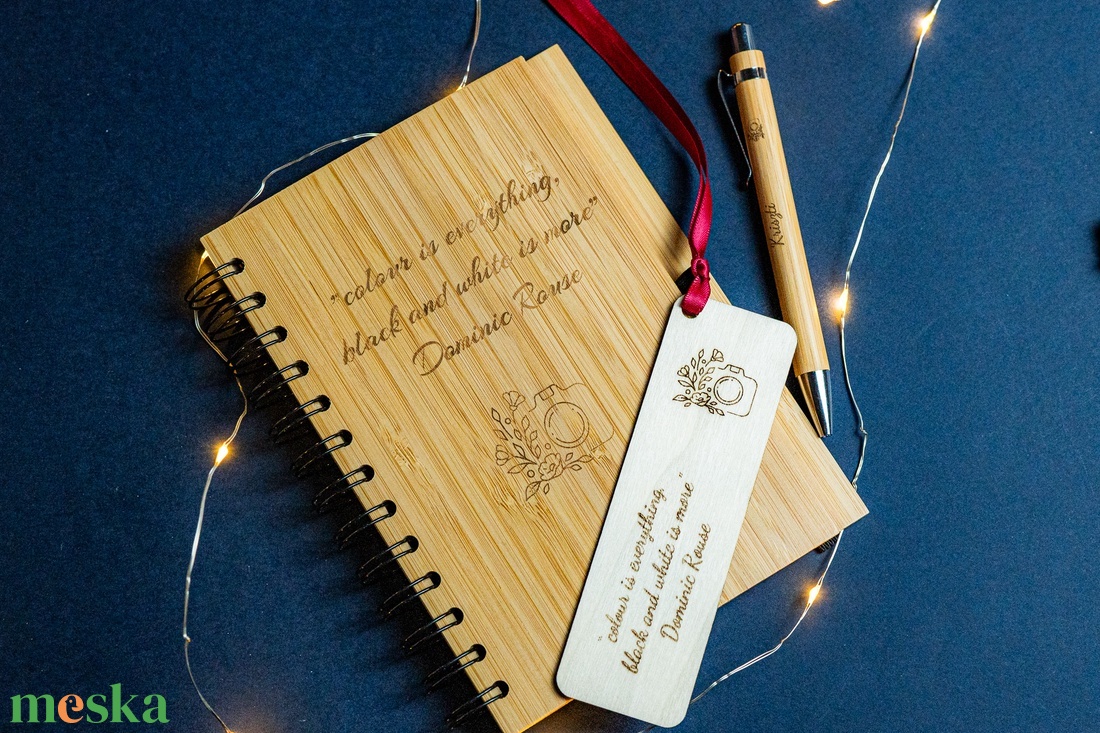 "colour is everything,
black and white is more"
Dominic Rouse
"colour is everything,
black and white is more"
Dominic Rouse
Kriszti
meska